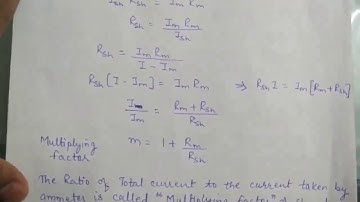 Ish Rsh = Im Rm
Rsh = Im Rm / Ish
Rsh = Im Rm / I - Im
Rsh [I - Im] = Im Rm ⇒ Rsh I = Im [Rm + Rsh]
I / Im = Rm + Rsh / Rsh
Multiplying factor m = 1 + Rm / Rsh
The Ratio of Total current to the current taken by
ammeter is called "Multiplying factor" of the